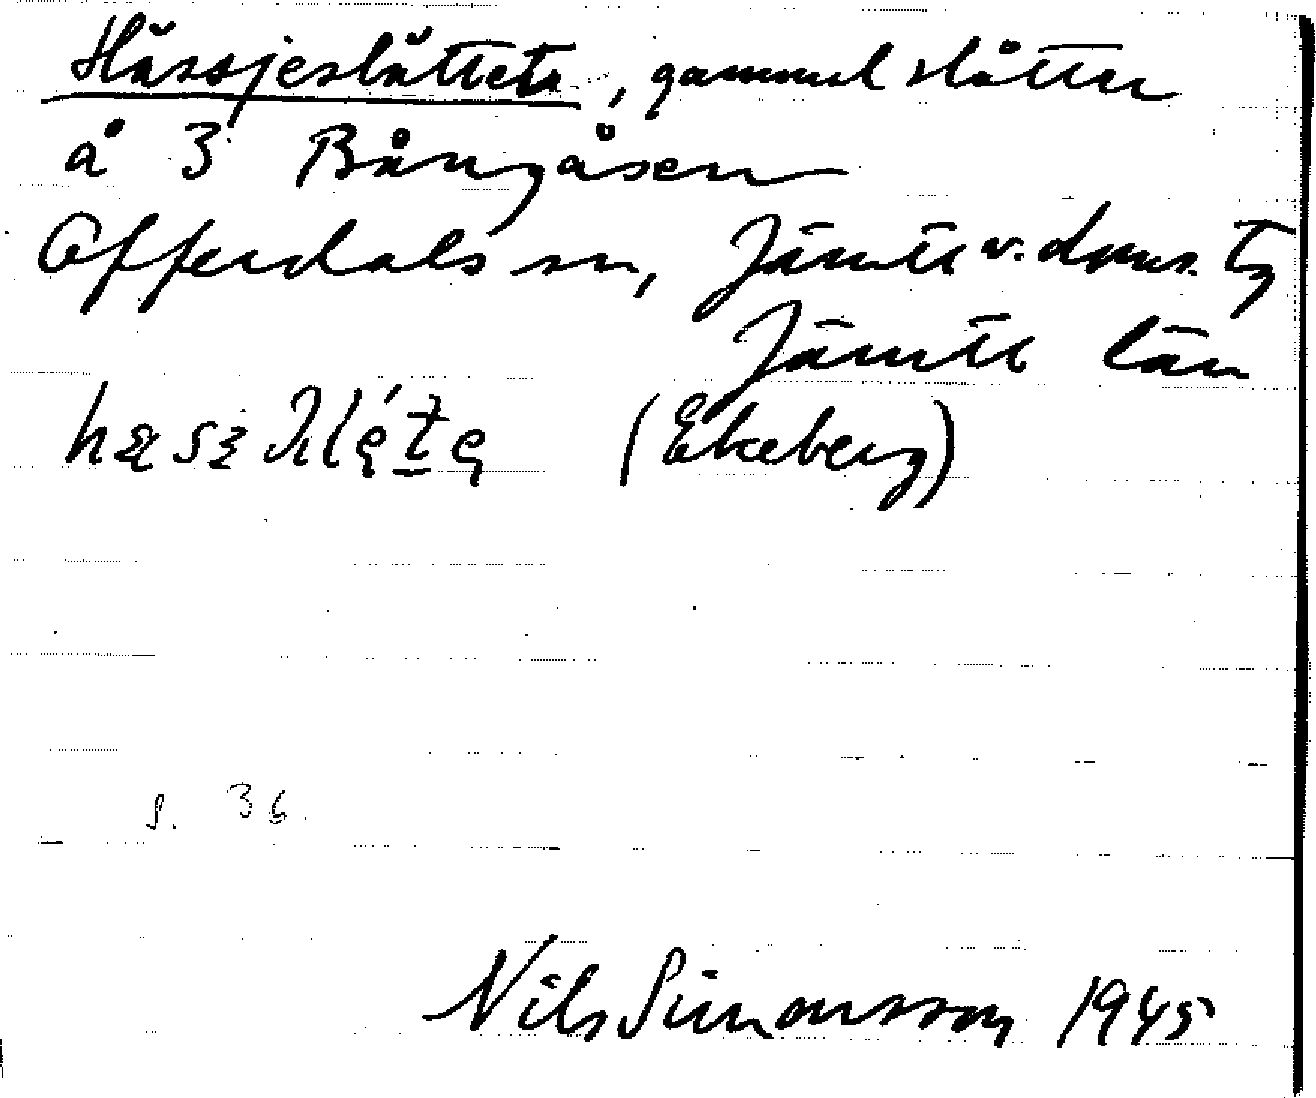 Hässjeslåttet, gammal slåtter
å 3 Bångåsen
Offerdals sn, Jämtl v. doms. tg
Jämtl län
(Ekeberg)
s. 36.
Nils Simonsson 1945